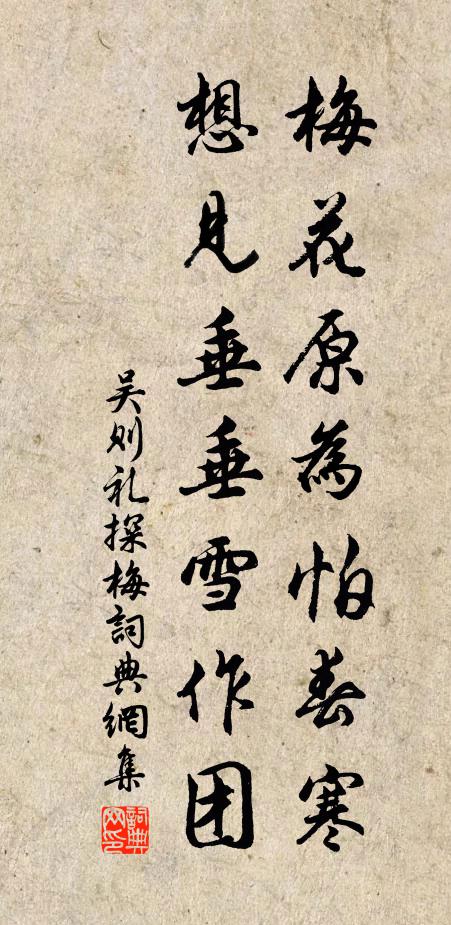 梅花原為怕春寒
想見垂垂雪作团
吴则礼探梅詞典網集
詞典网印